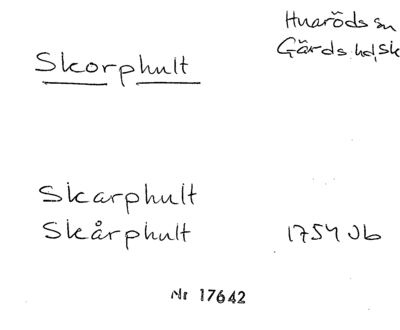 Huaröds sn
Gärds hd, Sk
Skorphult
Skarphult
Skårphult 1754 Jb
Nr 17642